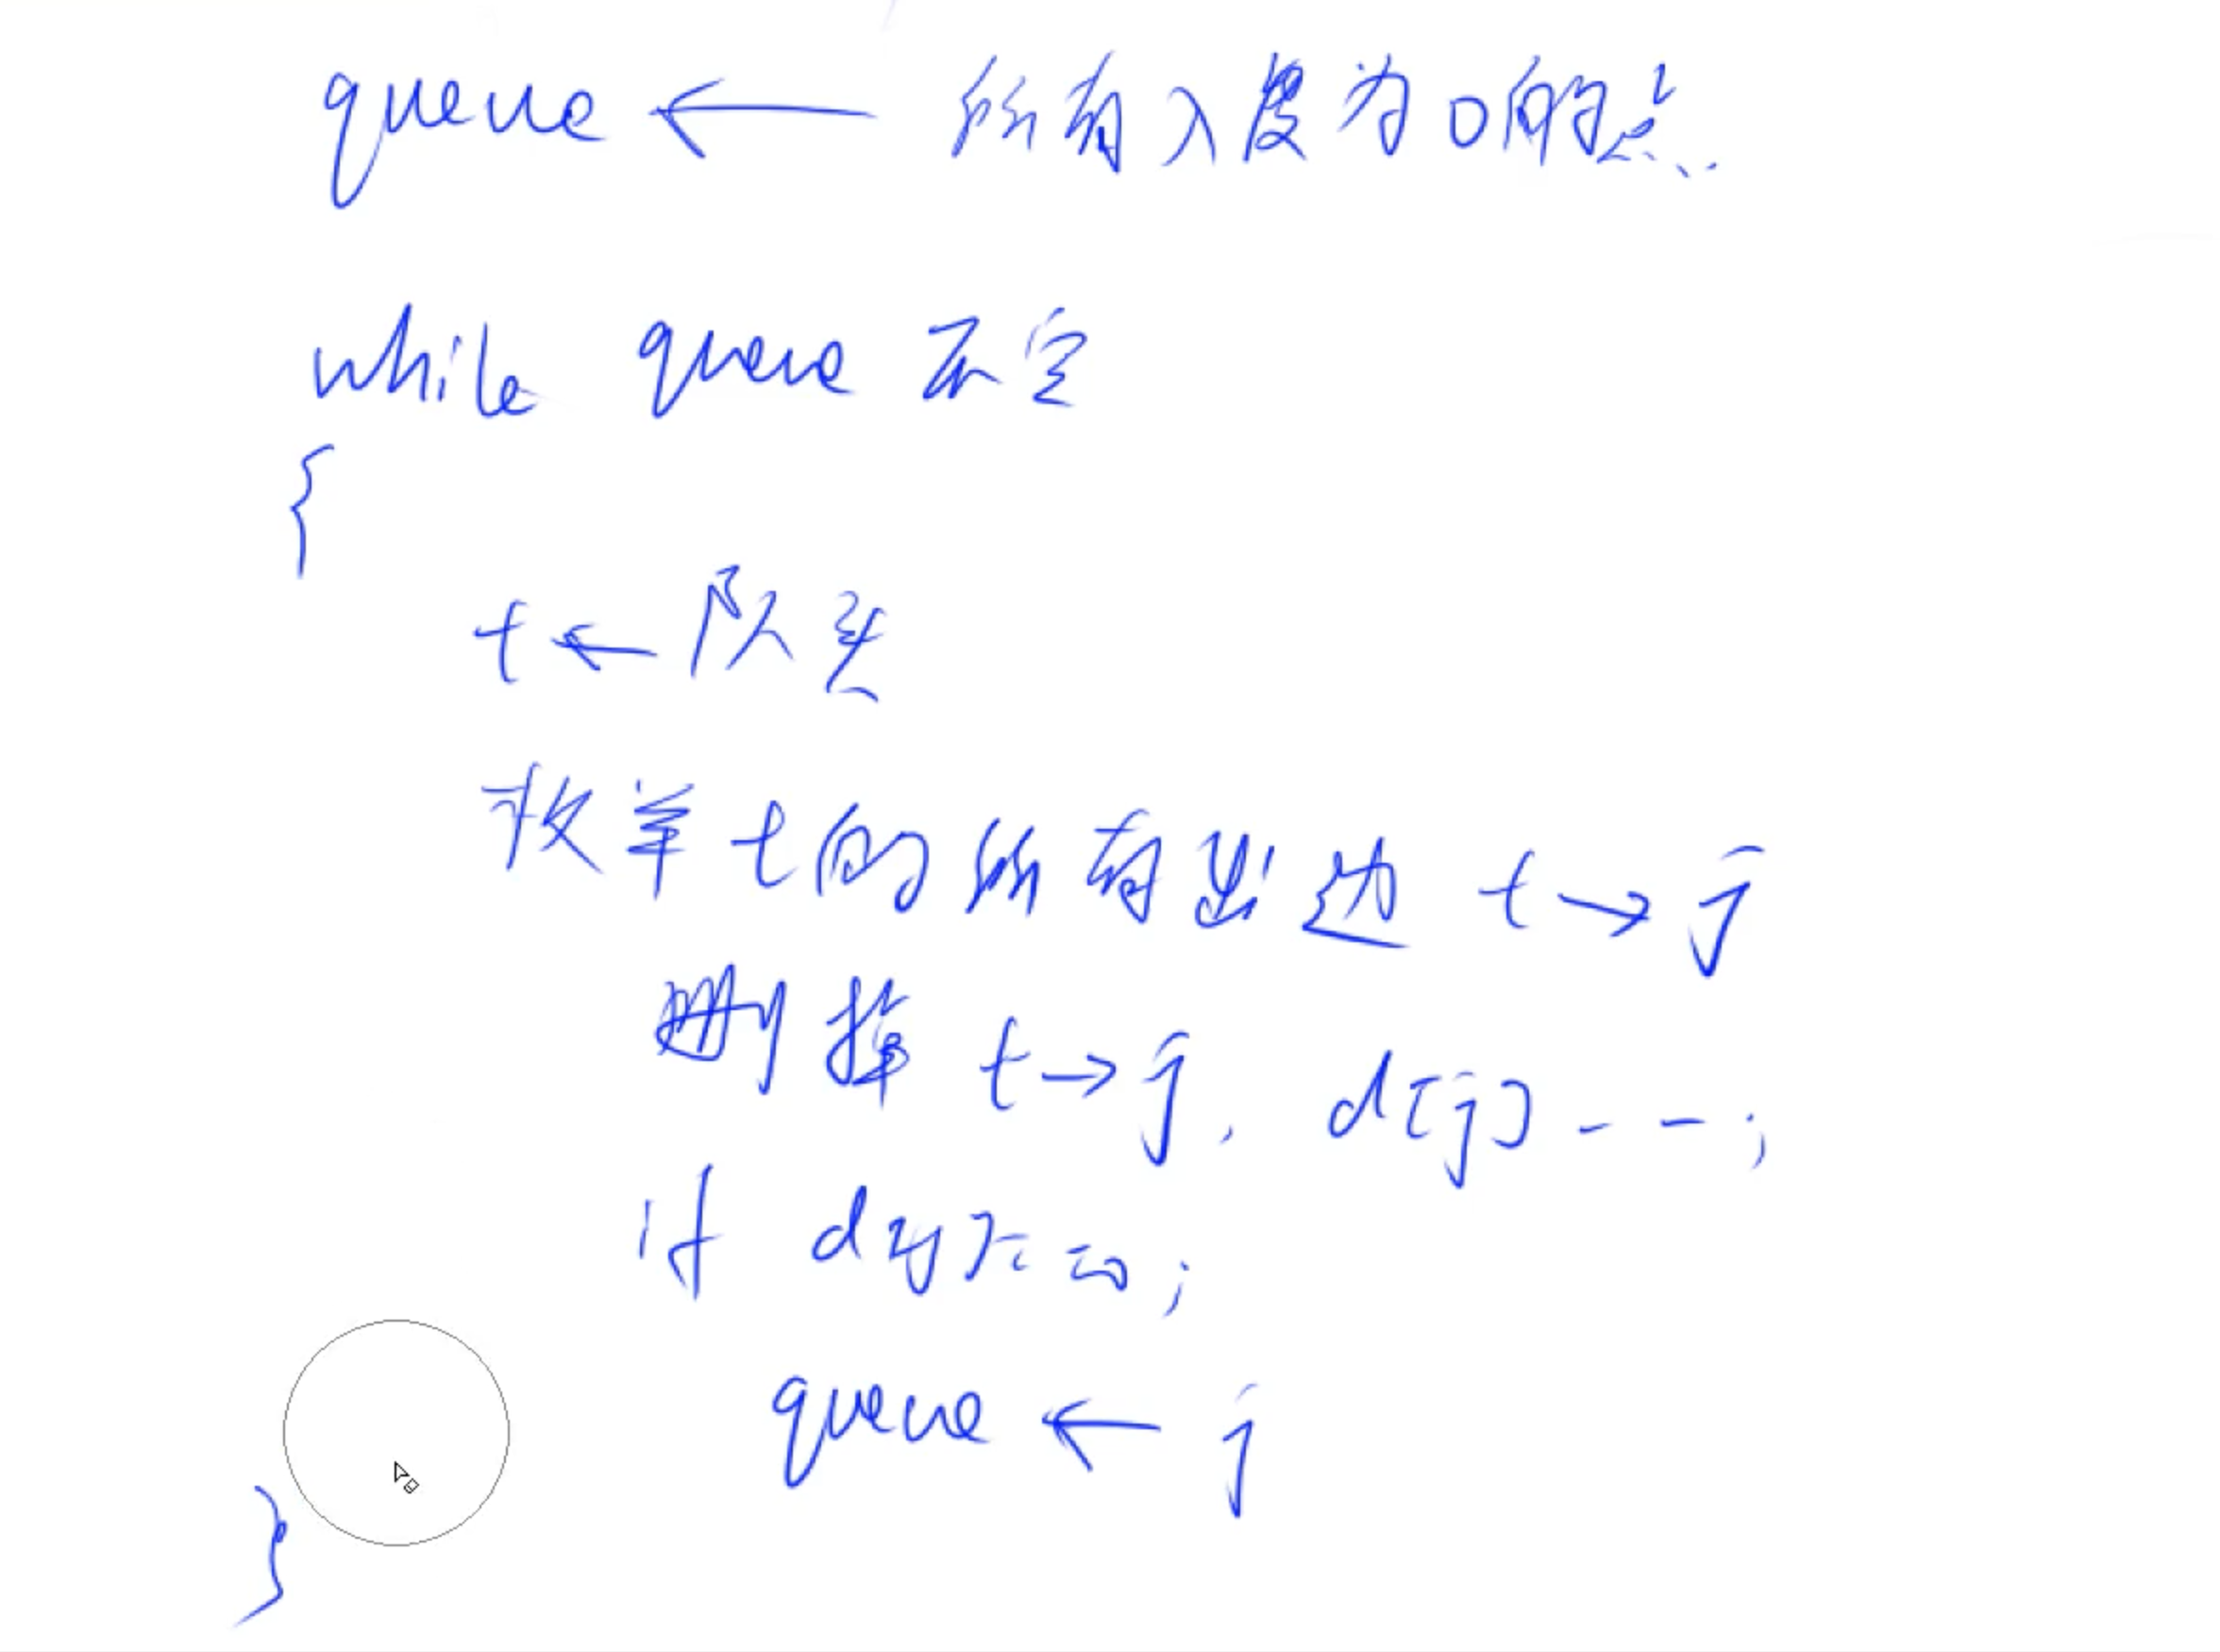 queue ← 所有入度为0的点
while queue 不空
{
t ← 队头
枚举t的所有出边 t→j
删掉 t→j, d[j]--;
if d[j]==0;
queue ← j
}